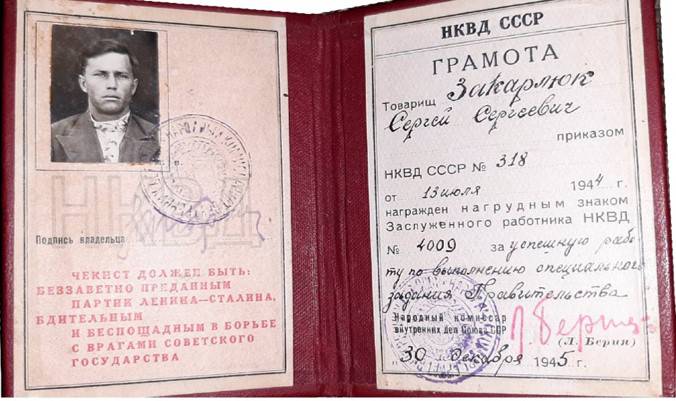 НКВД
Подпись владельца
ЧЕКИСТ ДОЛЖЕН БЫТЬ:
БЕЗЗАВЕТНО ПРЕДАННЫМ
ПАРТИИ ЛЕНИНА—СТАЛИНА,
БДИТЕЛЬНЫМ
И БЕСПОЩАДНЫМ В БОРЬБЕ
С ВРАГАМИ СОВЕТСКОГО
ГОСУДАРСТВА
НКВД СССР
ГРАМОТА
Товарищ Закарлюк
Сергей Сергеевич
приказом
НКВД СССР № 318
от 13 июля 1944 г.
награжден нагрудным знаком
Заслуженного работника НКВД
№ 4009 за успешную рабо
ту по выполнению специального
задания Правительства
Народный комиссар
внутренних дел Союза ССР
Л. Берия
(Л. Берия)
30 декабря 1945 г.